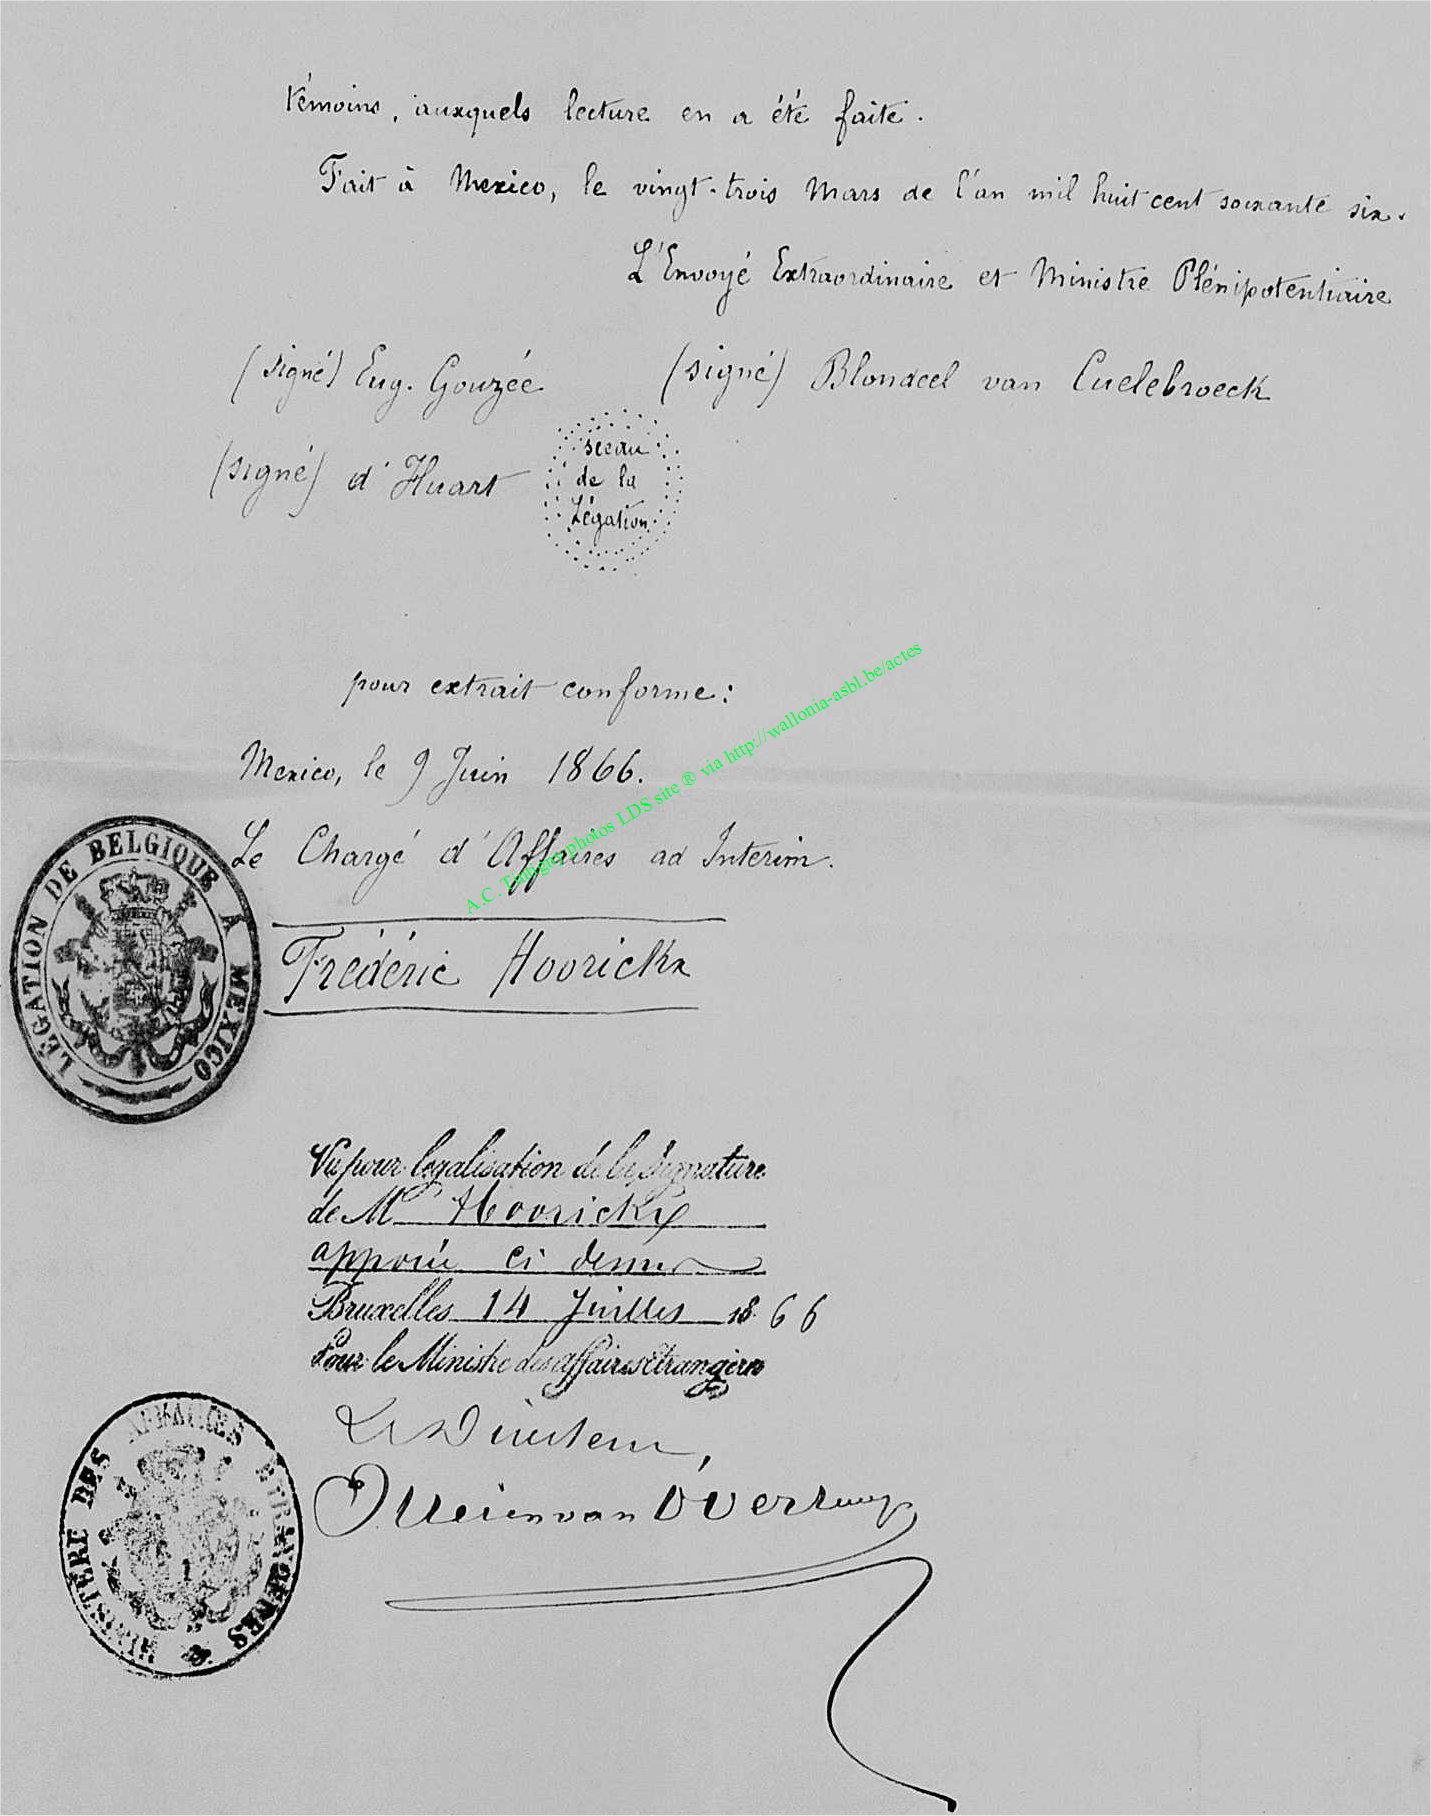 témoins, auxquels lecture en a été faite.
Fait à Mexico, le vingt-trois Mars de l'an mil huit cent soixante six.
L'Envoyé Extraordinaire et Ministre Plénipotentiaire
(signé) Eug. Gouzée (signé) Blondeel van Cuelebroeck
(signé) d'Huart
sceau
de la
Légation
pour extrait conforme:
Mexico, le 9 Juin 1866.
Le Chargé d'Affaires ad Interim.
Frédéric Hoorickx
LÉGATION DE BELGIQUE À MEXICO
Vu pour légalisation de la signature
de M Hoorickx
apposée ci dessus
Bruxelles 14 Juillet 1866
Pour le Ministre des affaires étrangères
Le Directeur,
van
MINISTÈRE DES AFFAIRES ETRANGERES
A.C. photos LDS site ® via http://wallonia-asbl.be/actes